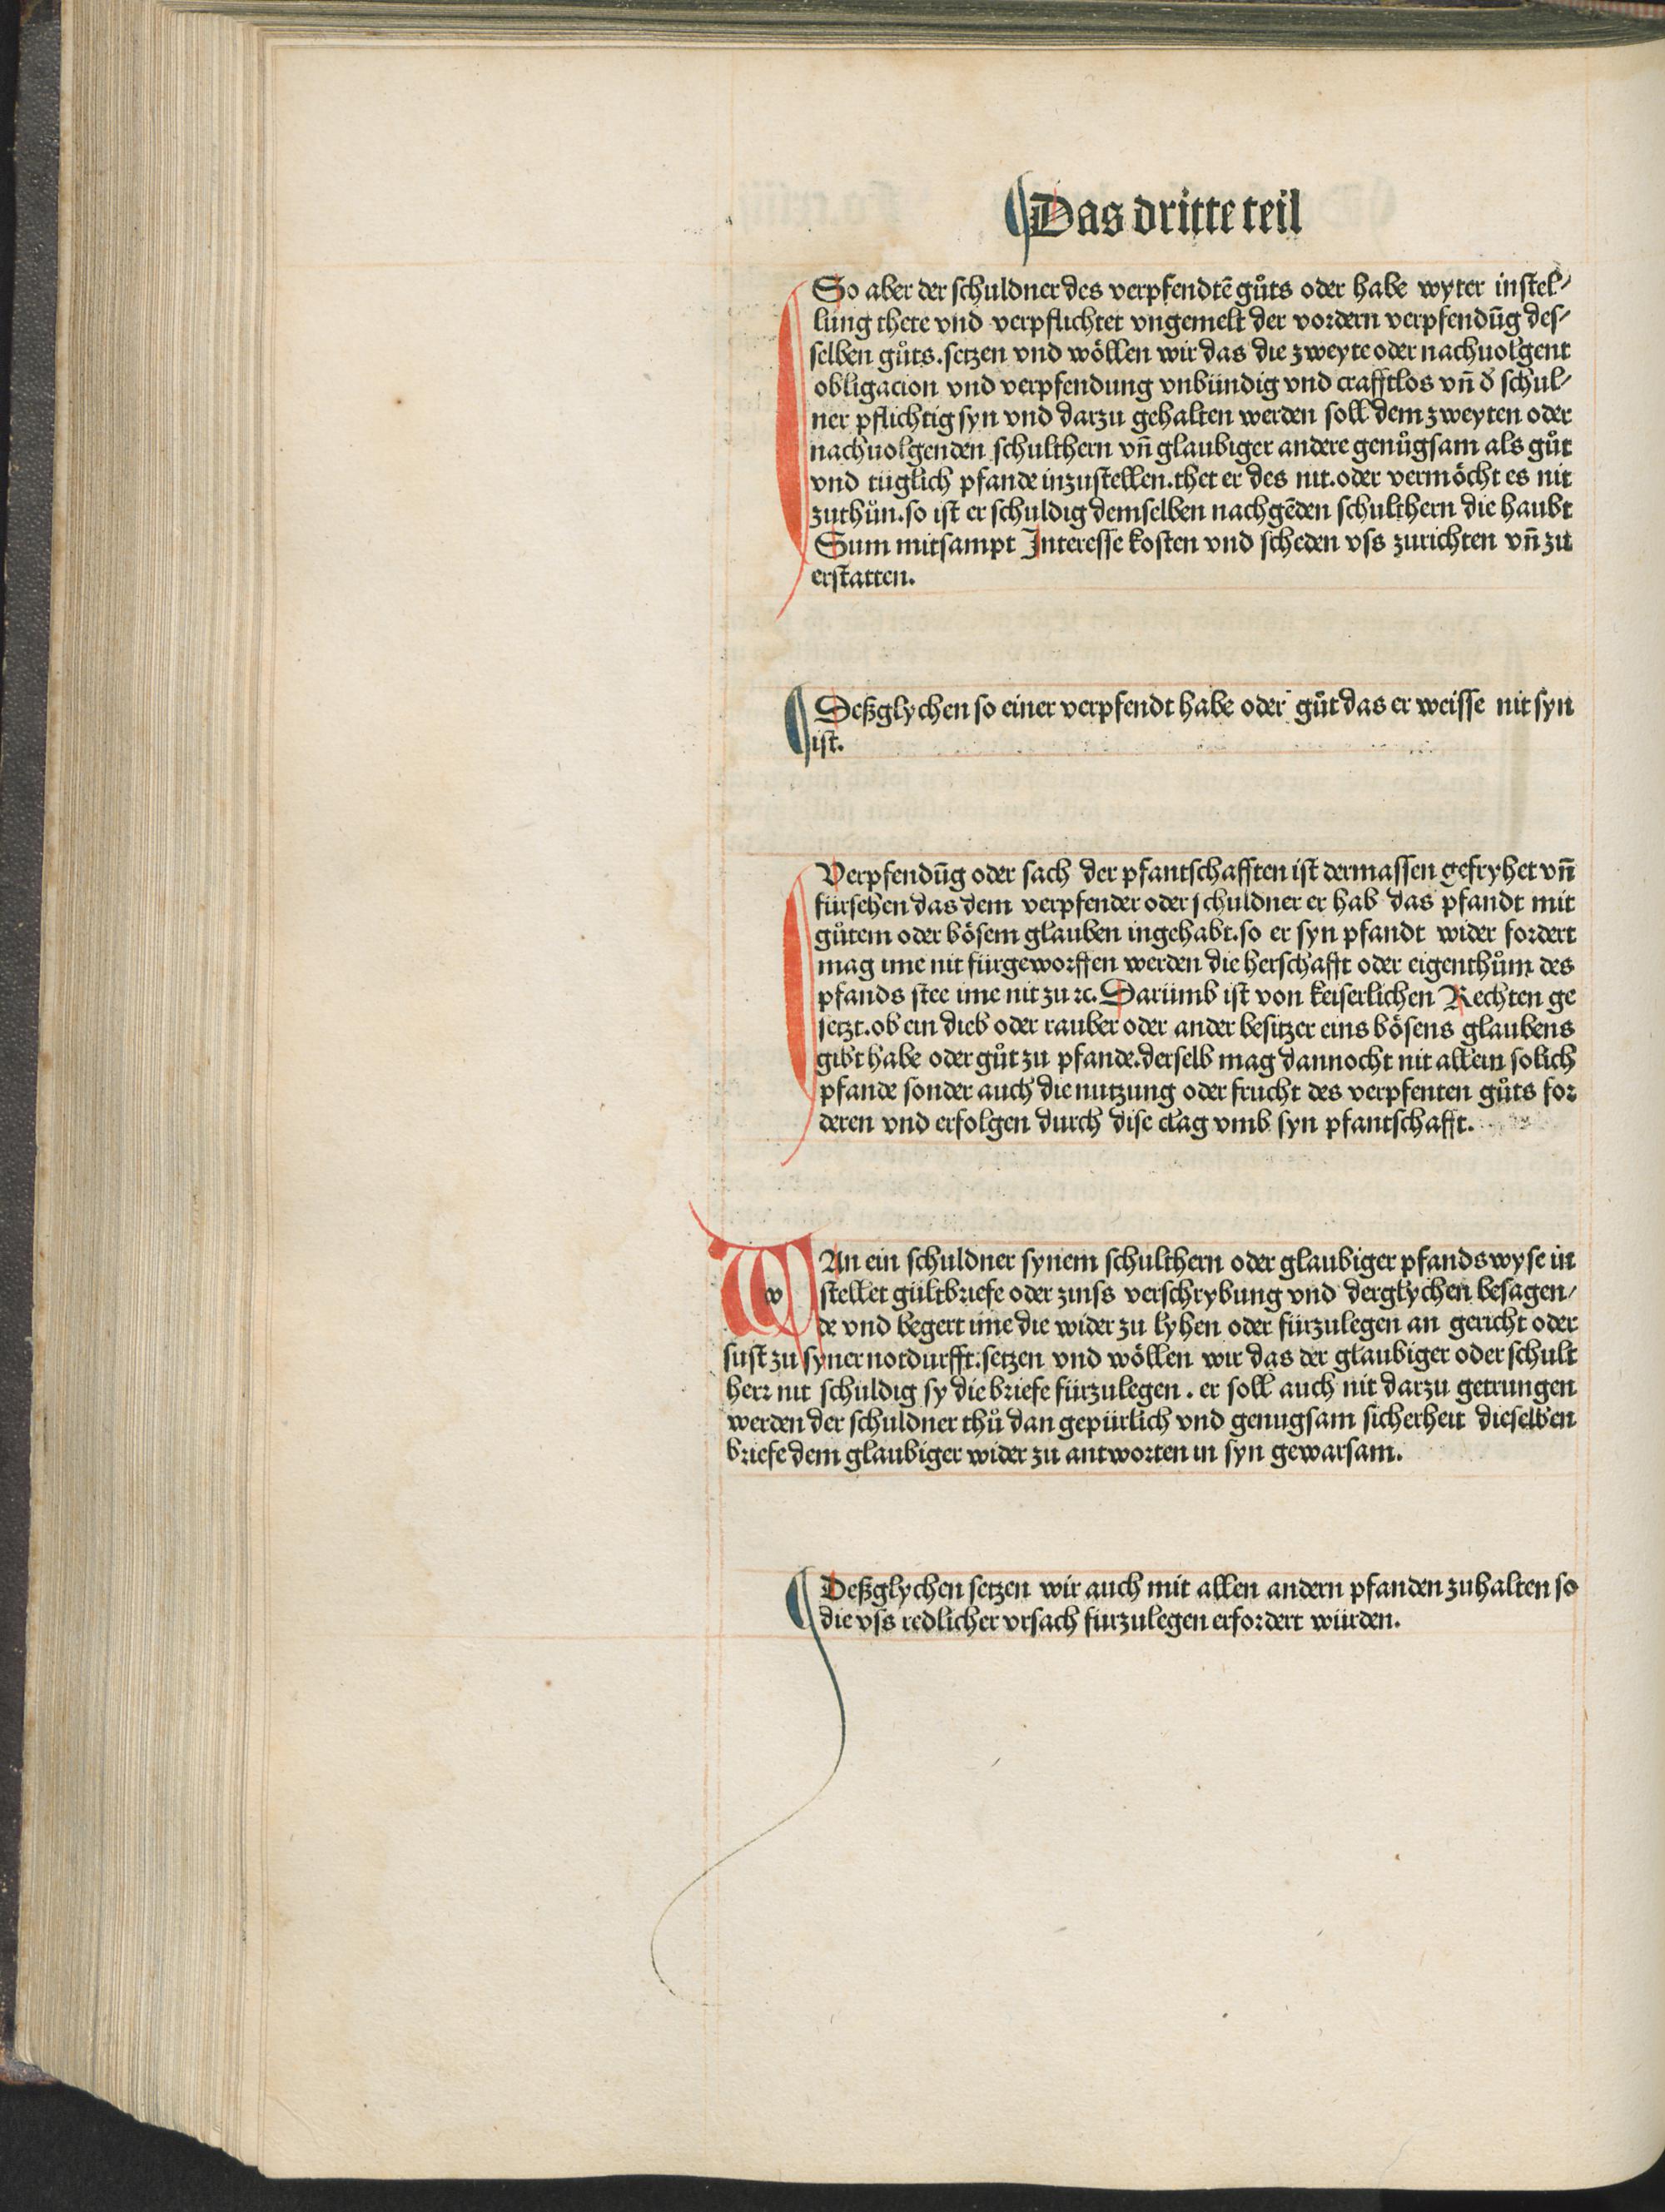 Das dritte teil
So aber der schuldner des verpfendtē gůts oder habe wyter instel⸗
lung thete vnd verpflichtet vngemelt der vordern verpfendūg des⸗
selben gůts. setzen vnd wöllen wir das die zweyte oder nachuolgent
obligacion vnd verpfendung vnbündig vnd crafftlos vn̄ d̕ schul⸗
ner pflichtig syn vnd darzu gehalten werden soll dem zweyten oder
nachuolgenden schulthern vn̄ glaubiger andere genůgsam als gůt
vnd tüglich pfande inzustellen. thet er des nit. oder vermöcht es nit
zuthůn. so ist er schuldig demselben nachgēden schulthern die haubt
Sum mitsampt Interesse kosten vnd scheden vss zurichten vn̄ zu
erstatten.
Deßglychen so einer verpfendt habe oder gůt das er weisse nit syn
ist.
Verpfendūg oder sach der pfantschafften ist dermassen gefryhet vn̄
fürsehen das dem verpfender oder schuldner er hab das pfandt mit
gůtem oder bösem glauben ingehabt. so er syn pfandt wider fordert
mag ime nit fürgeworffen werden die herschafft oder eigenthům des
pfands stee ime nit zu ⁊c. Darümb ist von keiserlichen Rechten ge
setzt. ob ein dieb oder rauber oder ander besitzer eins bösens glaubens
gibt habe oder gůt zu pfande. derselb mag dannocht nit allein solich
pfande sonder auch die nutzung oder frucht des verpfenten gůts for
deren vnd erfolgen durch dise clag vmb syn pfantschafft.
WAn ein schuldner synem schulthern oder glaubiger pfands wyse in
stellet gültbriefe oder zinss verschrybung vnd derglychen besagen⸗
de vnd begert ime die wider zu lyhen oder fürzulegen an gericht oder
sust zu syner notdurfft. setzen vnd wöllen wir das der glaubiger oder schult
herr nit schuldig sy die briefe fürzulegen. er soll auch nit darzu getrungen
werden der schuldner thů dan gepürlich vnd genugsam sicherheit dieselben
briefe dem glaubiger wider zu antworten in syn gewarsam.
Deßglychen setzen wir auch mit allen andern pfanden zuhalten so
die vss redlicher vrsach fürzulegen erfordert würden.